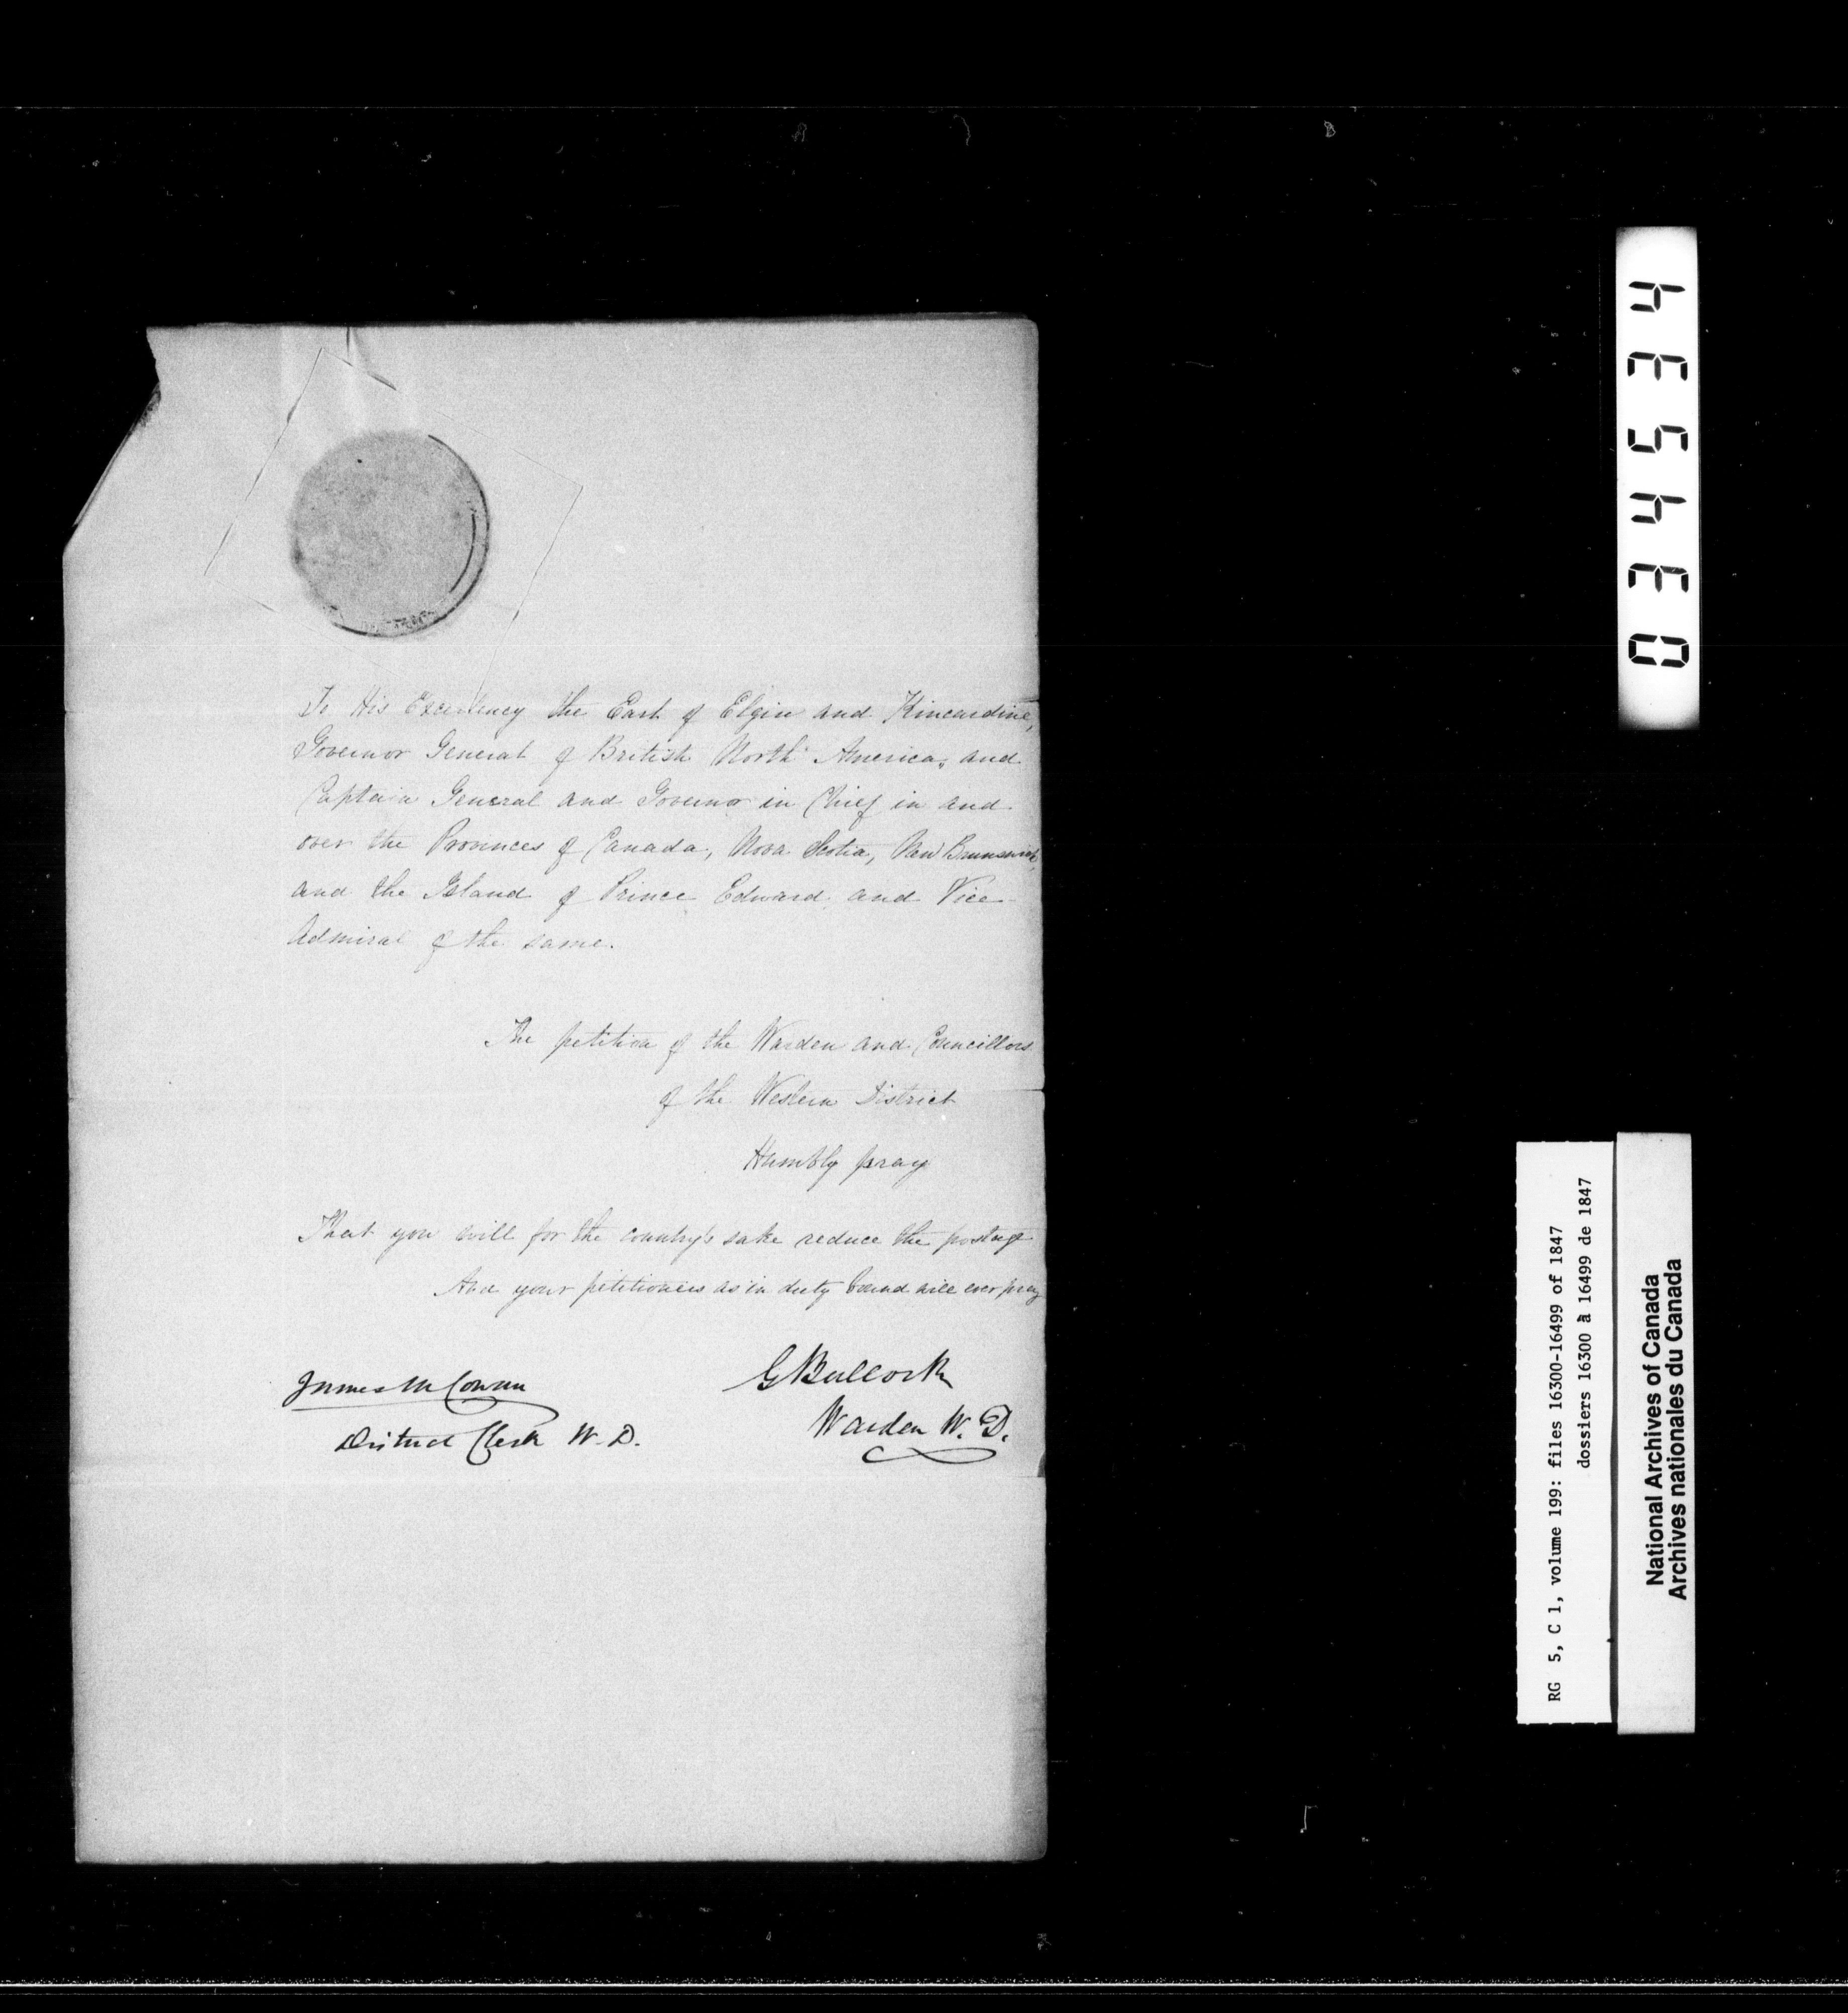 To His Excellency the Earl of Elgin and Kincardine,
Governor General of British North America, and
Captain General and Governor in Chief in and
over the Provinces of Canada, Nova Scotia, New Brunswick
and the Island of Prince Edward and Vice
Admiral of the same.
The petition of the Warden and Councillors
of the Western District
Humbly pray
That you will for the country's sake reduce the postage
And your petitioners as in duty bound will ever pray
James McCowan
District Clerk W. D.
G Bullock
Warden W. D.
034534
RG 5, C 1, volume 199: files 16300-16499 of 1847
dossiers 16300 à 16499 de 1847
National Archives of Canada
Archives nationales du Canada